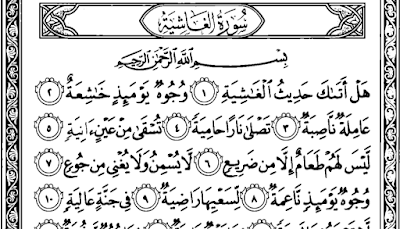 سُورَةُ الْغَاشِيَةِ
بِسْمِ اللَّهِ الرَّحْمَٰنِ الرَّحِيمِ
هَلْ أَتَىٰكَ حَدِيثُ ٱلْغَٰشِيَةِ ١ وُجُوهٌ يَوْمَئِذٍ خَٰشِعَةٌ ٢
عَامِلَةٌ نَّاصِبَةٌ ٣ تَصْلَىٰ نَارًا حَامِيَةً ٤ تُسْقَىٰ مِنْ عَيْنٍ ءَانِيَةٍ ٥
لَّيْسَ لَهُمْ طَعَامٌ إِلَّا مِن ضَرِيعٍ ٦ لَّا يُسْمِنُ وَلَا يُغْنِى مِن جُوعٍ ٧
وُجُوهٌ يَوْمَئِذٍ نَّاعِمَةٌ ٨ لِّسَعْيِهَا رَاضِيَةٌ ٩ فِى جَنَّةٍ عَالِيَةٍ ١٠